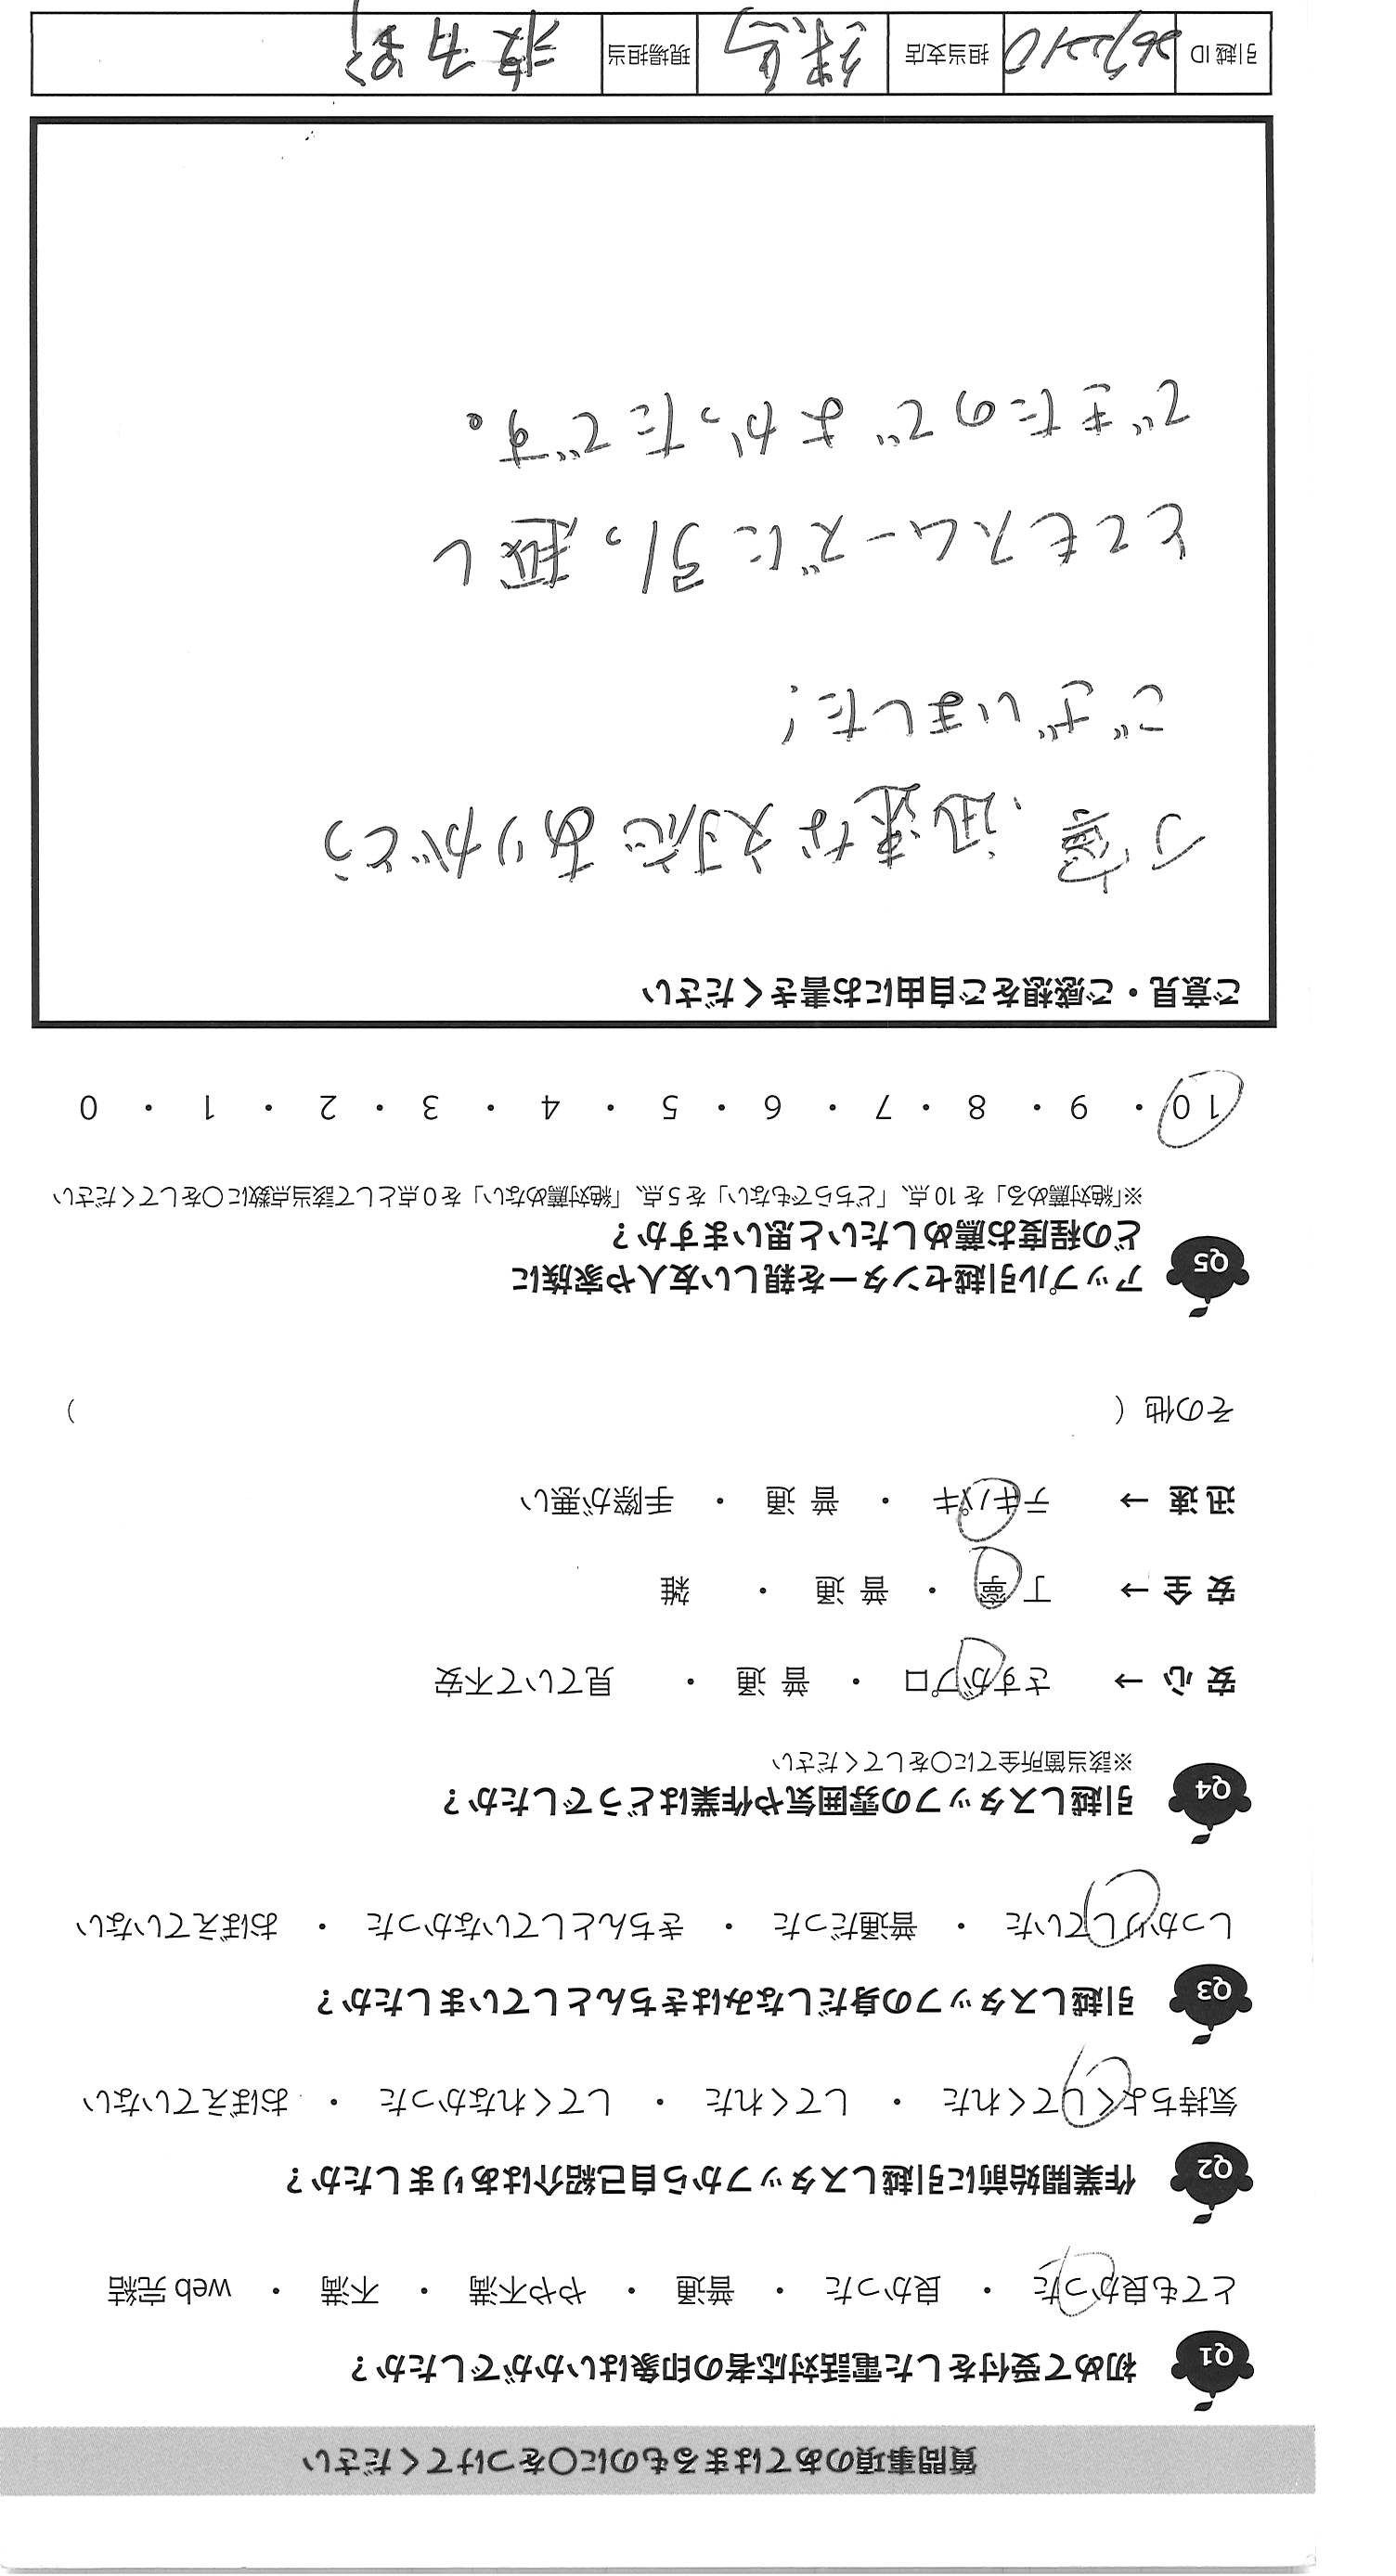 質問事項のあてはまるものに〇をつけてください
Q1 初めて受付をした電話対応者の印象はいかがでしたか？
とても良かった ・ 良かった ・ 普通 ・ やや不満 ・ 不満 ・ web 完結
Q2 作業開始前に引越しスタッフから自己紹介はありましたか？
気持ちよくしてくれた ・ してくれた ・ してくれなかった ・ おぼえていない
Q3 引越しスタッフの身だしなみはきちんとしていましたか？
しっかりしていた ・ 普通だった ・ きちんとしていなかった ・ おぼえていない
Q4 引越しスタッフの雰囲気や作業はどうでしたか？
※該当箇所全てに〇をしてください
安 心 → さすがプロ ・ 普 通 ・ 見ていて不安
安 全 → 丁 寧 ・ 普 通 ・ 雑
迅 速 → テキパキ ・ 普 通 ・ 手際が悪い
その他（ ）
Q5 アップル引越センターを親しい友人や家族に
どの程度お薦めしたいと思いますか？
※「絶対薦める」を 10 点、「どちらでもない」を 5 点、「絶対薦めない」を 0 点として該当点数に〇をしてください
10 ・ 9 ・ 8 ・ 7 ・ 6 ・ 5 ・ 4 ・ 3 ・ 2 ・ 1 ・ 0
ご意見・ご感想をご自由にお書きください
丁寧、迅速な対応ありがとう
ございました！
とてもスムーズに引っ越し
できたのでよかったです。
引越 ID 担当支店 練馬 現場担当